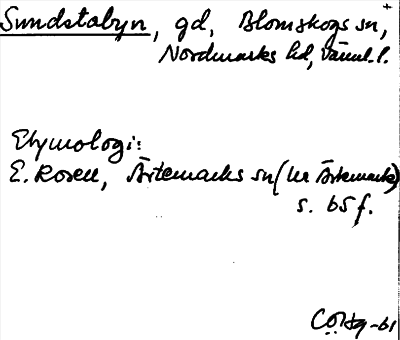 Sundstabyn, gd, Blomskogs sn, +
Nordmarks hd, Värml. l.
Etymologi:
E. Rosell, Ärtemarks sn (ur Ärtemark)
s. 65 f.
-61